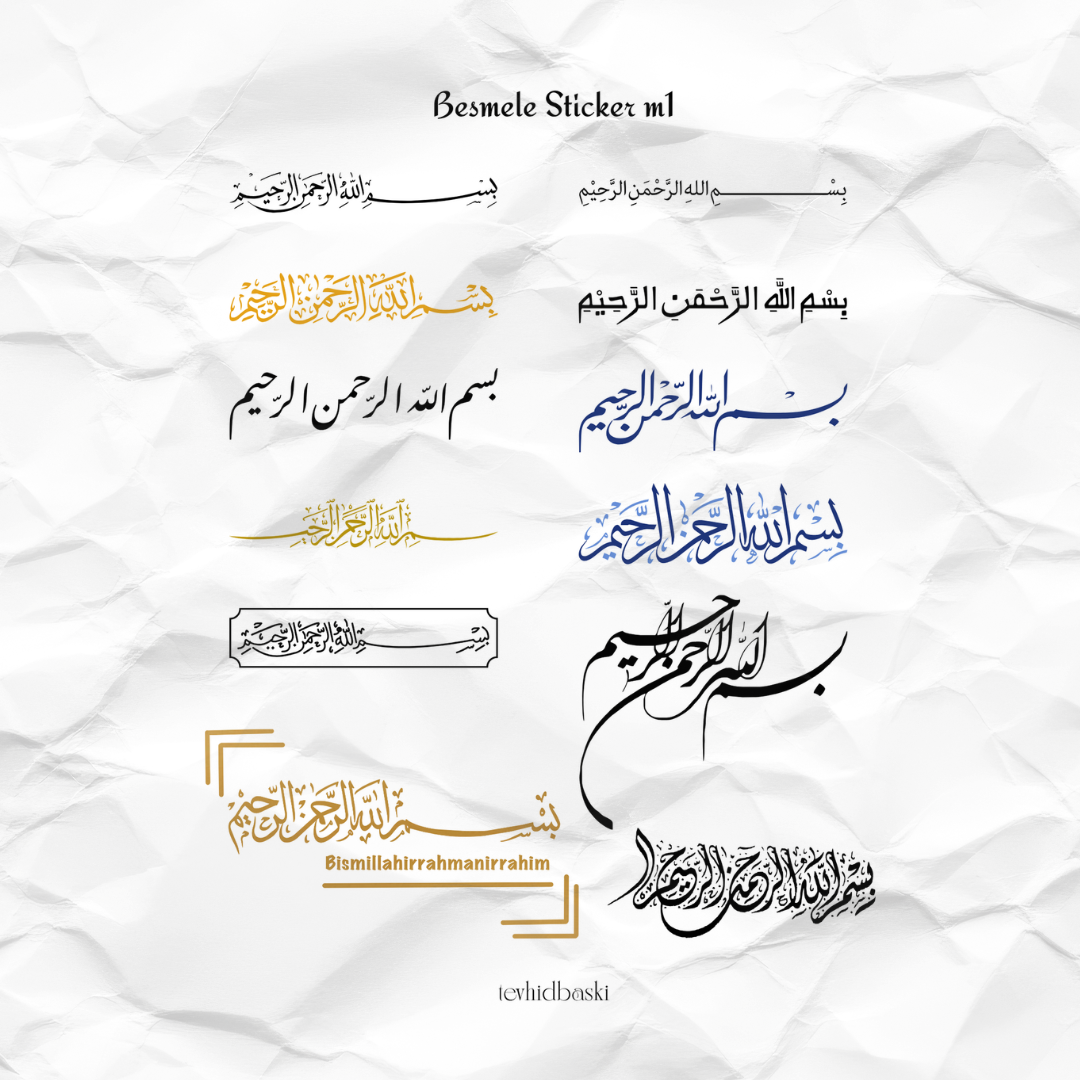 Besmele Sticker m1
بِسْمِ اللهِ الرَّحْمَنِ الرَّحِيْمِ
بِسْمِ اللهِ الرَّحْمَنِ الرَّحِيْمِ
بِسْمِ اللهِ الرَّحْمَنِ الرَّحِيْمِ
بِسْمِ اللَّهِ الرَّحْمَنِ الرَّحِيْمِ
بسم اللّه الرّحمن الرّحيم
بسم اللّه الرّحمن الرّحيم
بسم الله الرحمن الرحيم
بِسْمِ اللهِ الرَّحْمَنِ الرَّحِيْمِ
بِسْمِ اللهِ الرَّحْمَنِ الرَّحِيْمِ
بسم الله الرحمن الرحيم
بِسْمِ اللهِ الرَّحْمَنِ الرَّحِيْمِ
Bismillahirrahmanirrahim
بِسْمِ اللهِ الرَّحْمَنِ الرَّحِيمِ
tevhidbaski